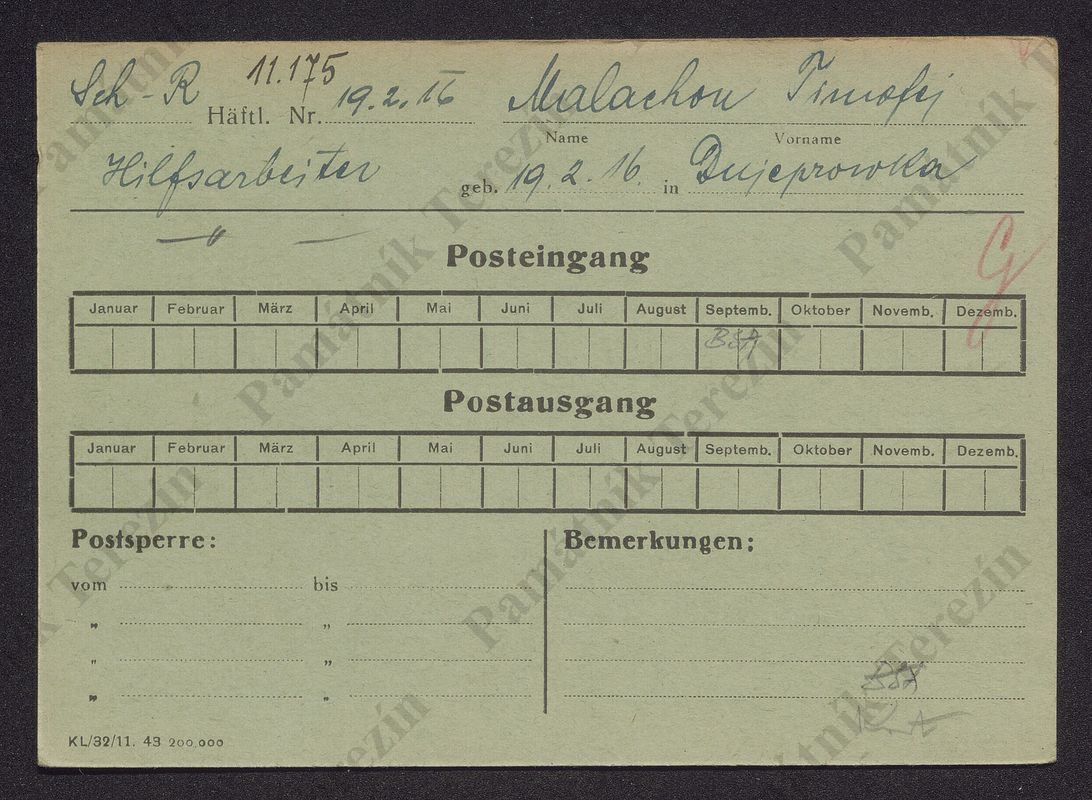 Sch-R Häftl. Nr. 11.175 19.2.16 Malachou Timofej
Name Vorname
Hilfsarbeiter geb. 19.2.16. in Dnjeprowka
— " —
G
Posteingang
Januar Februar März April Mai Juni Juli August Septemb. Oktober Novemb. Dezemb.
Postausgang
Januar Februar März April Mai Juni Juli August Septemb. Oktober Novemb. Dezemb.
Postsperre: Bemerkungen:
vom bis
" "
" "
" "
KL/32/11. 43 200.000
Památník Terezín